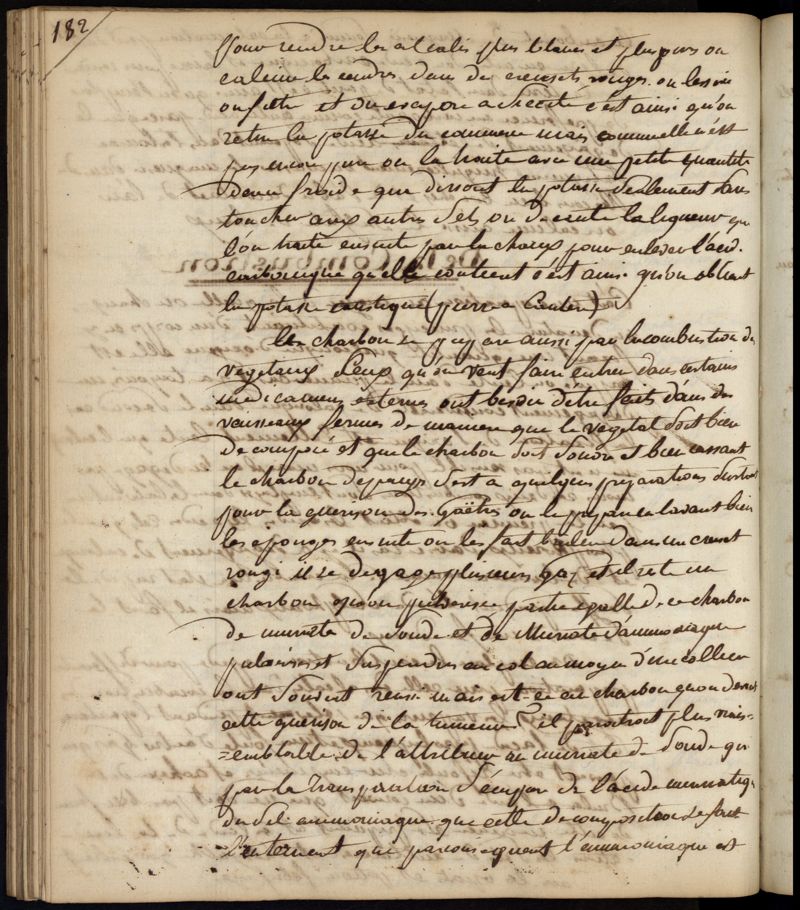 182
pour rendre les alcalis plus blancs et plus purs on
calcine les cendres dans des creusets rouges. on lessive
on filtre et on evapore a siccité c'est ainsi qu'on
retire la potasse du commerce mais comme elle n'est
pas encore pure on la traite avec une petite quantité
d'eau froide qui dissout la potasse seulement sans
toucher aux autres sels, on decante la liqueur que
l'on traite ensuite par la chaux pour enlever l'acid.
carbonique qu'elle contient c'est ainsi qu'on obtient
la potasse caustique (pierre a Cautere)
les charbon se prepare aussi par la combustion des
vegetaux ceux qu'on veut faire entrer dans certains
medicamens externes ont besoin d'être faits dans des
vaisseaux fermés de maniere que le vegetal soit bien
decomposé et que le charbon soit sonore et bien cassant
le charbon d'eponge sert a quelques preparations surtout
pour la guerison des Goëtres on le prepare en lavant bien
les eponges ensuite on les fait bruler dans un creuset
rougi il se degage plusieurs gaz et il reste un
charbon qu'on pulverise partie egalle de ce charbon
de muriate de soude et de Muriate d'ammoniaque
pulverisés et suspendus au col au moyen d'un collier
ont souvent reussi mais est-ce au charbon qu'on devroit
cette guerison de la tumeur? il paroitroit plus vrais=
=emblable de l'attribuer au muriate de soude qui
par la transpiration s'empare de l'acide muriatiq.
du sel ammoniaque que cette decomposition se fait
lentement que par consequent l'ammoniaque est